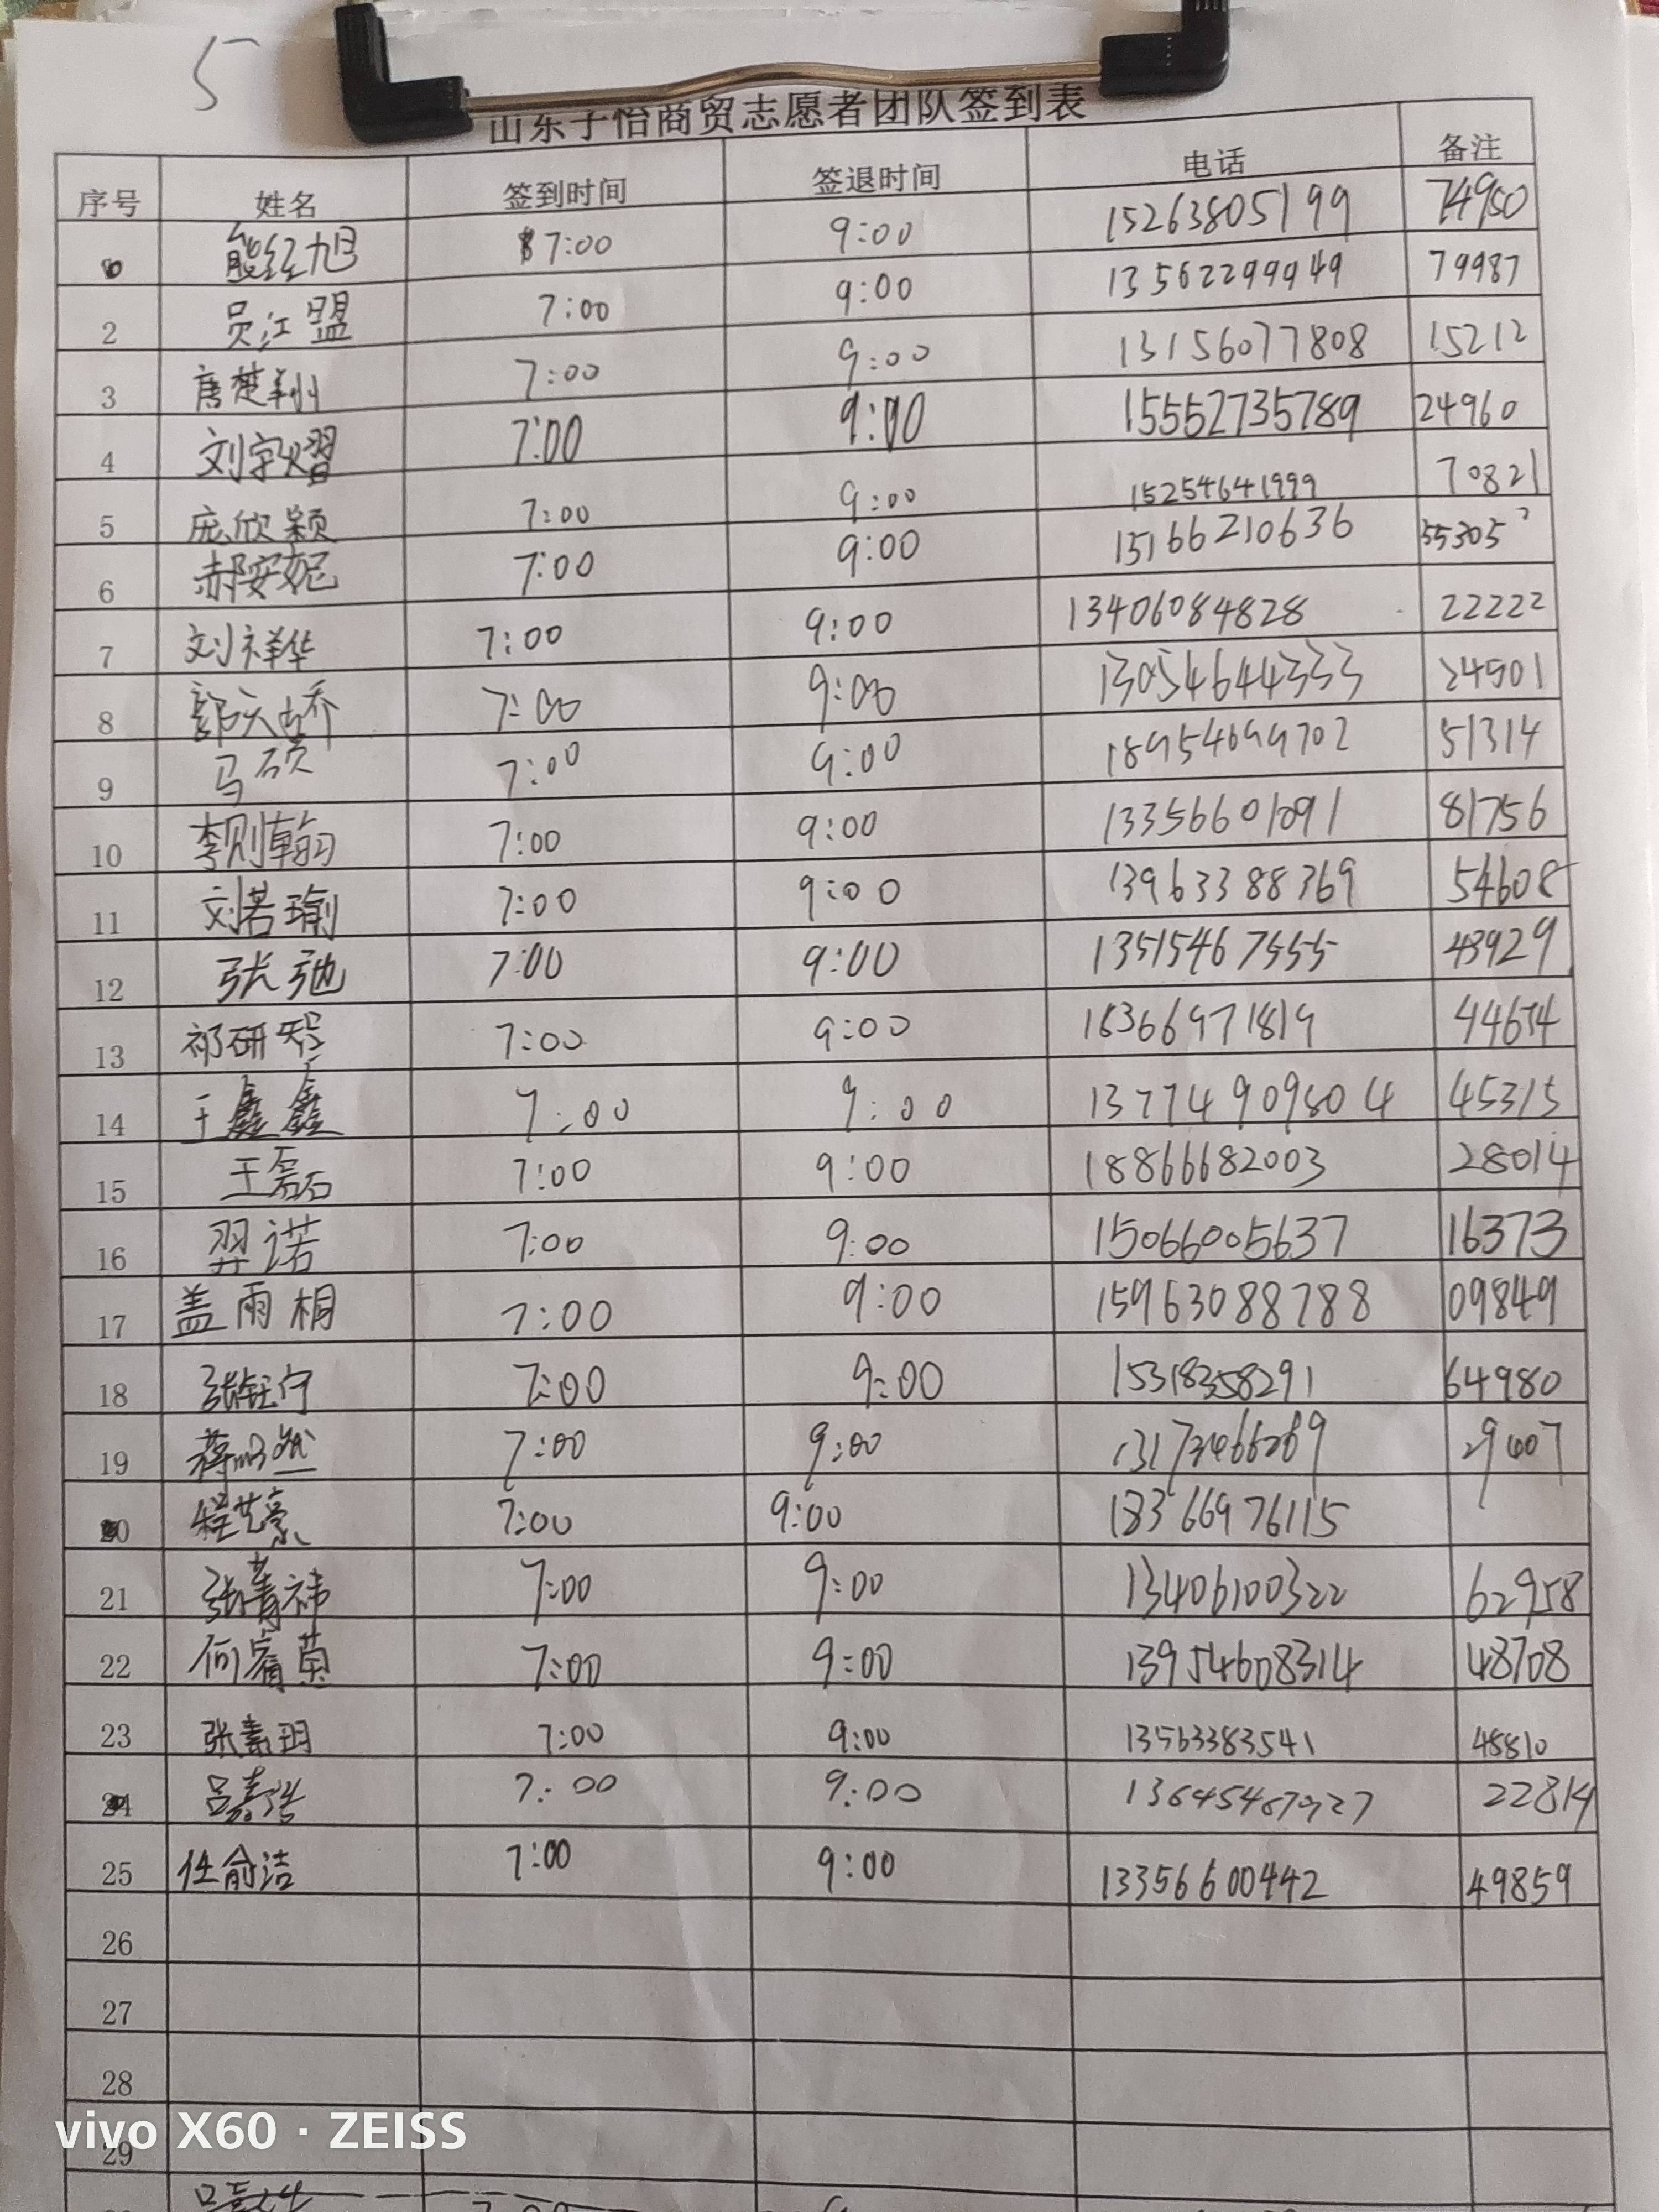 5
山东子怡商贸志愿者团队签到表
序号 姓名 签到时间 签退时间 电话 备注
熊经旭 7:00 9:00 15263805199 74950
2 员江盟 7:00 9:00 13562299949 79987
3 唐楚翔 7:00 9:00 13156077808 15212
4 刘宇熠 7:00 9:00 15552735789 24960
5 庞欣颖 7:00 9:00 15254641999 70821
6 郝安妮 7:00 9:00 15166210636 55305
7 刘祥华 7:00 9:00 13406084828 22222
8 7:00 9:00 13054644333 24901
9 马硕 7:00 9:00 18954699702 51314
10 李则翰 7:00 9:00 13356601091 81756
11 刘若瑜 7:00 9:00 13963388369 54608
12 张弛 7:00 9:00 13515467555 43929
13 祁研 7:00 9:00 18366971819
14 王鑫鑫 7:00 9:00 13774909804 45315
15 王磊 7:00 9:00 18866682003 28014
16 羿诺 7:00 9:00 15066005637 16373
17 盖雨桐 7:00 9:00 15963088788 09849
18 张钰宁 7:00 9:00 15318358291 64980
19 蒋明燃 7:00 9:00 13173466269 29407
20 程艺豪 7:00 9:00 18366976115
21 张菁祎 7:00 9:00 13406100322 62958
22 何宥茵 7:00 9:00 13954608314 48708
23 张素玥 7:00 9:00 13563383541 48810
24 吕嘉浩 7:00 9:00 22814
25 任俞洁 7:00 9:00 13356600442 49859
26
27
28
29
vivo X60 · ZEISS